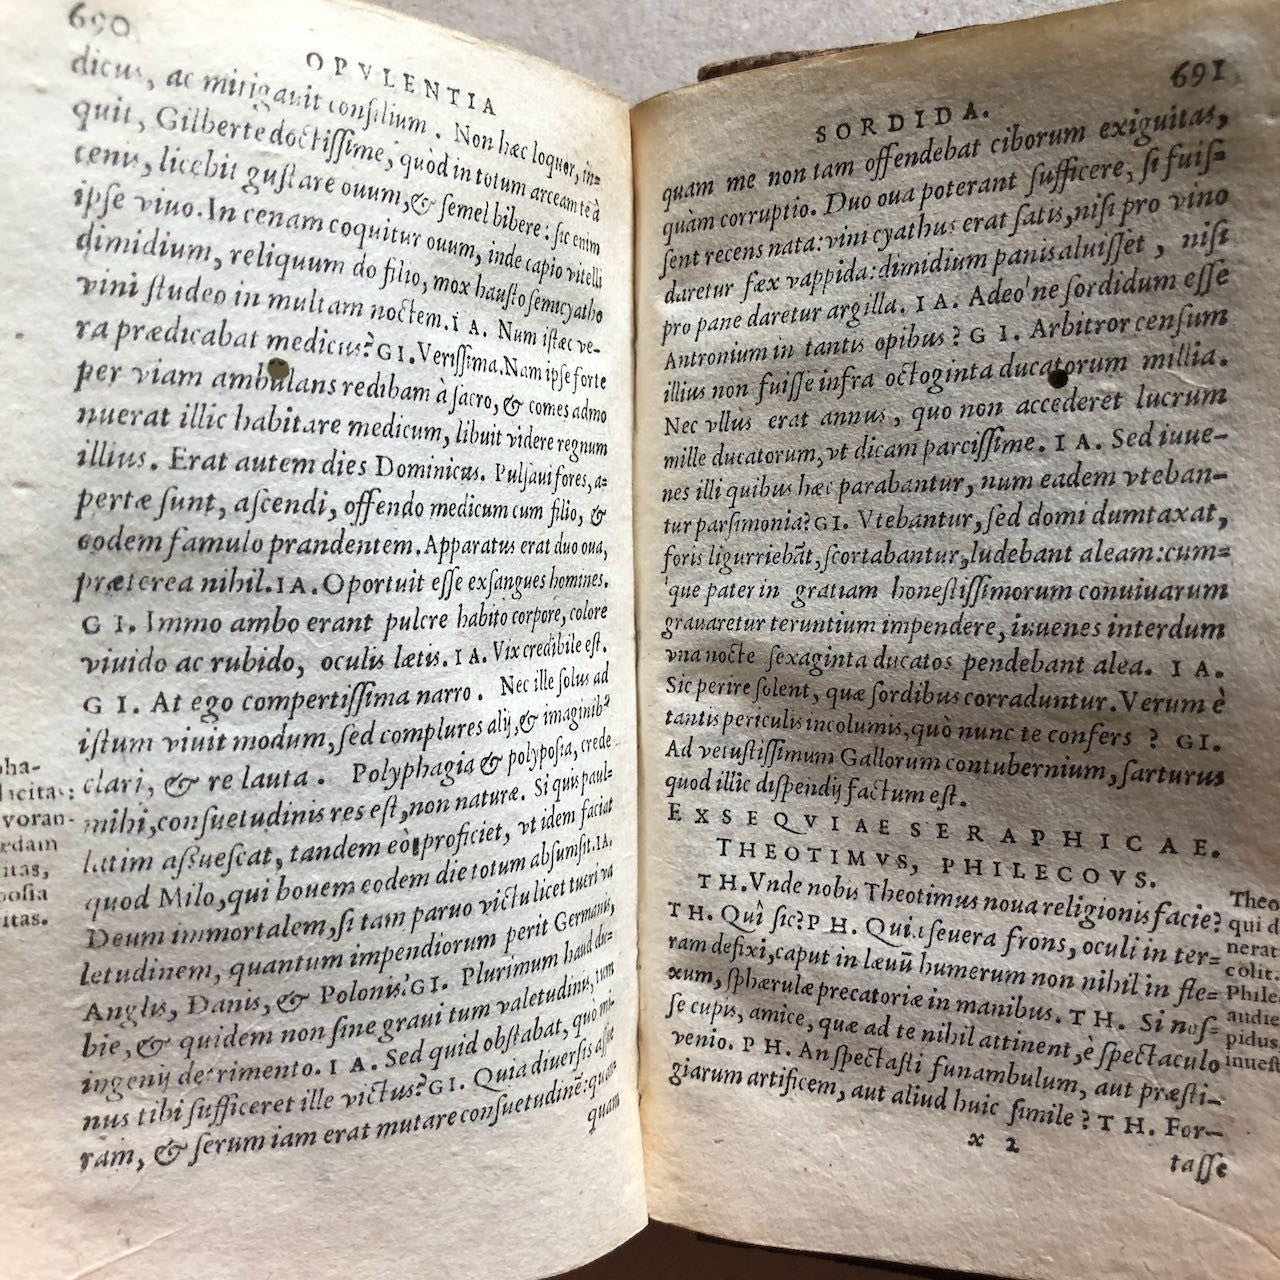 690
OPVLENTIA
dicus, ac mitigauit consilium. Non hæc loquor, in=
quit, Gilberte doctissime, quòd in totum arceam te à
cenis, licebit gustare ouum, & semel bibere: sic enim
ipse viuo. In cenam coquitur ouum, inde capio vitelli
dimidium, reliquum do filio, mox hausto semicyatho
vini studeo in multam noctem. IA. Num istæc ve-
ra prædicabat medicus? GI. Verissima. Nam ipse forte
per viam ambulans redibam à sacro, & comes admo
nuerat illic habitare medicum, libuit videre regnum
illius. Erat autem dies Dominicus. Pulsaui fores, a=
pertæ sunt, ascendi, offendo medicum cum filio, &
eodem famulo prandentem. Apparatus erat duo oua,
præterea nihil. IA. Oportuit esse exsangues homines.
GI. Immo ambo erant pulcre habito corpore, colore
viuido ac rubido, oculis lætis. IA. Vix credibile est.
GI. At ego compertissima narro. Nec ille solus ad
istum viuit modum, sed complures alij, & imaginib⁹
clari, & re lauta. Polyphagia & polyposia, crede
mihi, consuetudinis res est, non naturæ. Si quis paul=
latim assuescat, tandem eò proficiet, vt idem faciat
quod Milo, qui bouem eodem die totum absumsit. IA.
Deum immortalem, si tam paruo victu licet tueri va
letudinem, quantum impendiorum perit Germanis,
Anglis, Danis, & Polonis? GI. Plurimum haud du-
bie, & quidem non sine graui tum valetudinis, tum
ingenij detrimento. IA. Sed quid obstabat, quò mi-
nus tibi sufficeret ille victus? GI. Quia diuersis assue
ram, & serum iam erat mutare consuetudinē: quam=
quam
pha-
voran-
edam
itas,
posia
itas.
691
SORDIDA.
quam me non tam offendebat ciborum exiguitas,
quàm corruptio. Duo oua poterant sufficere, si fuis=
sent recens nata: vini cyathus erat satis, nisi pro vino
daretur fæx vappida: dimidium panis aluisset, nisi
pro pane daretur argilla. IA. Adeo'ne sordidum esse
Antronium in tantis opibus? GI. Arbitror censum
illius non fuisse infra octoginta ducatorum millia.
Nec vllus erat annus, quo non accederet lucrum
mille ducatorum, vt dicam parcissime. IA. Sed iuue-
nes illi quibus hæc parabantur, num eadem vteban-
tur parsimonia? GI. Vtebantur, sed domi dumtaxat,
foris ligurriebāt, scortabantur, ludebant aleam: cum=
que pater in gratiam honestissimorum conuiuarum
grauaretur teruntium impendere, iuuenes interdum
vna nocte sexaginta ducatos pendebant alea. IA.
Sic perire solent, quæ sordibus corraduntur. Verum è
tantis periculis incolumis, quò nunc te confers? GI.
Ad vetustissimum Gallorum contubernium, sarturus
quod illic dispendij factum est.
EXSEQVIAE SERAPHICAE.
THEOTIMVS, PHILECOVS.
TH. Vnde nobis Theotimus noua religionis facie?
TH. Quî sic? PH. Quia seuera frons, oculi in ter=
ram defixi, caput in læuū humerum non nihil in fle=
xum, sphærulæ precatoriæ in manibus. TH. Si nos=
se cupis, amice, quæ ad te nihil attinent, è spectaculo
venio. PH. An spectasti funambulum, aut præsti-
giarum artificem, aut aliud huic simile? TH. For-
x 2
tasse
Theo
qui d
nerat
colit.
Phile
audie
pidus
inuest